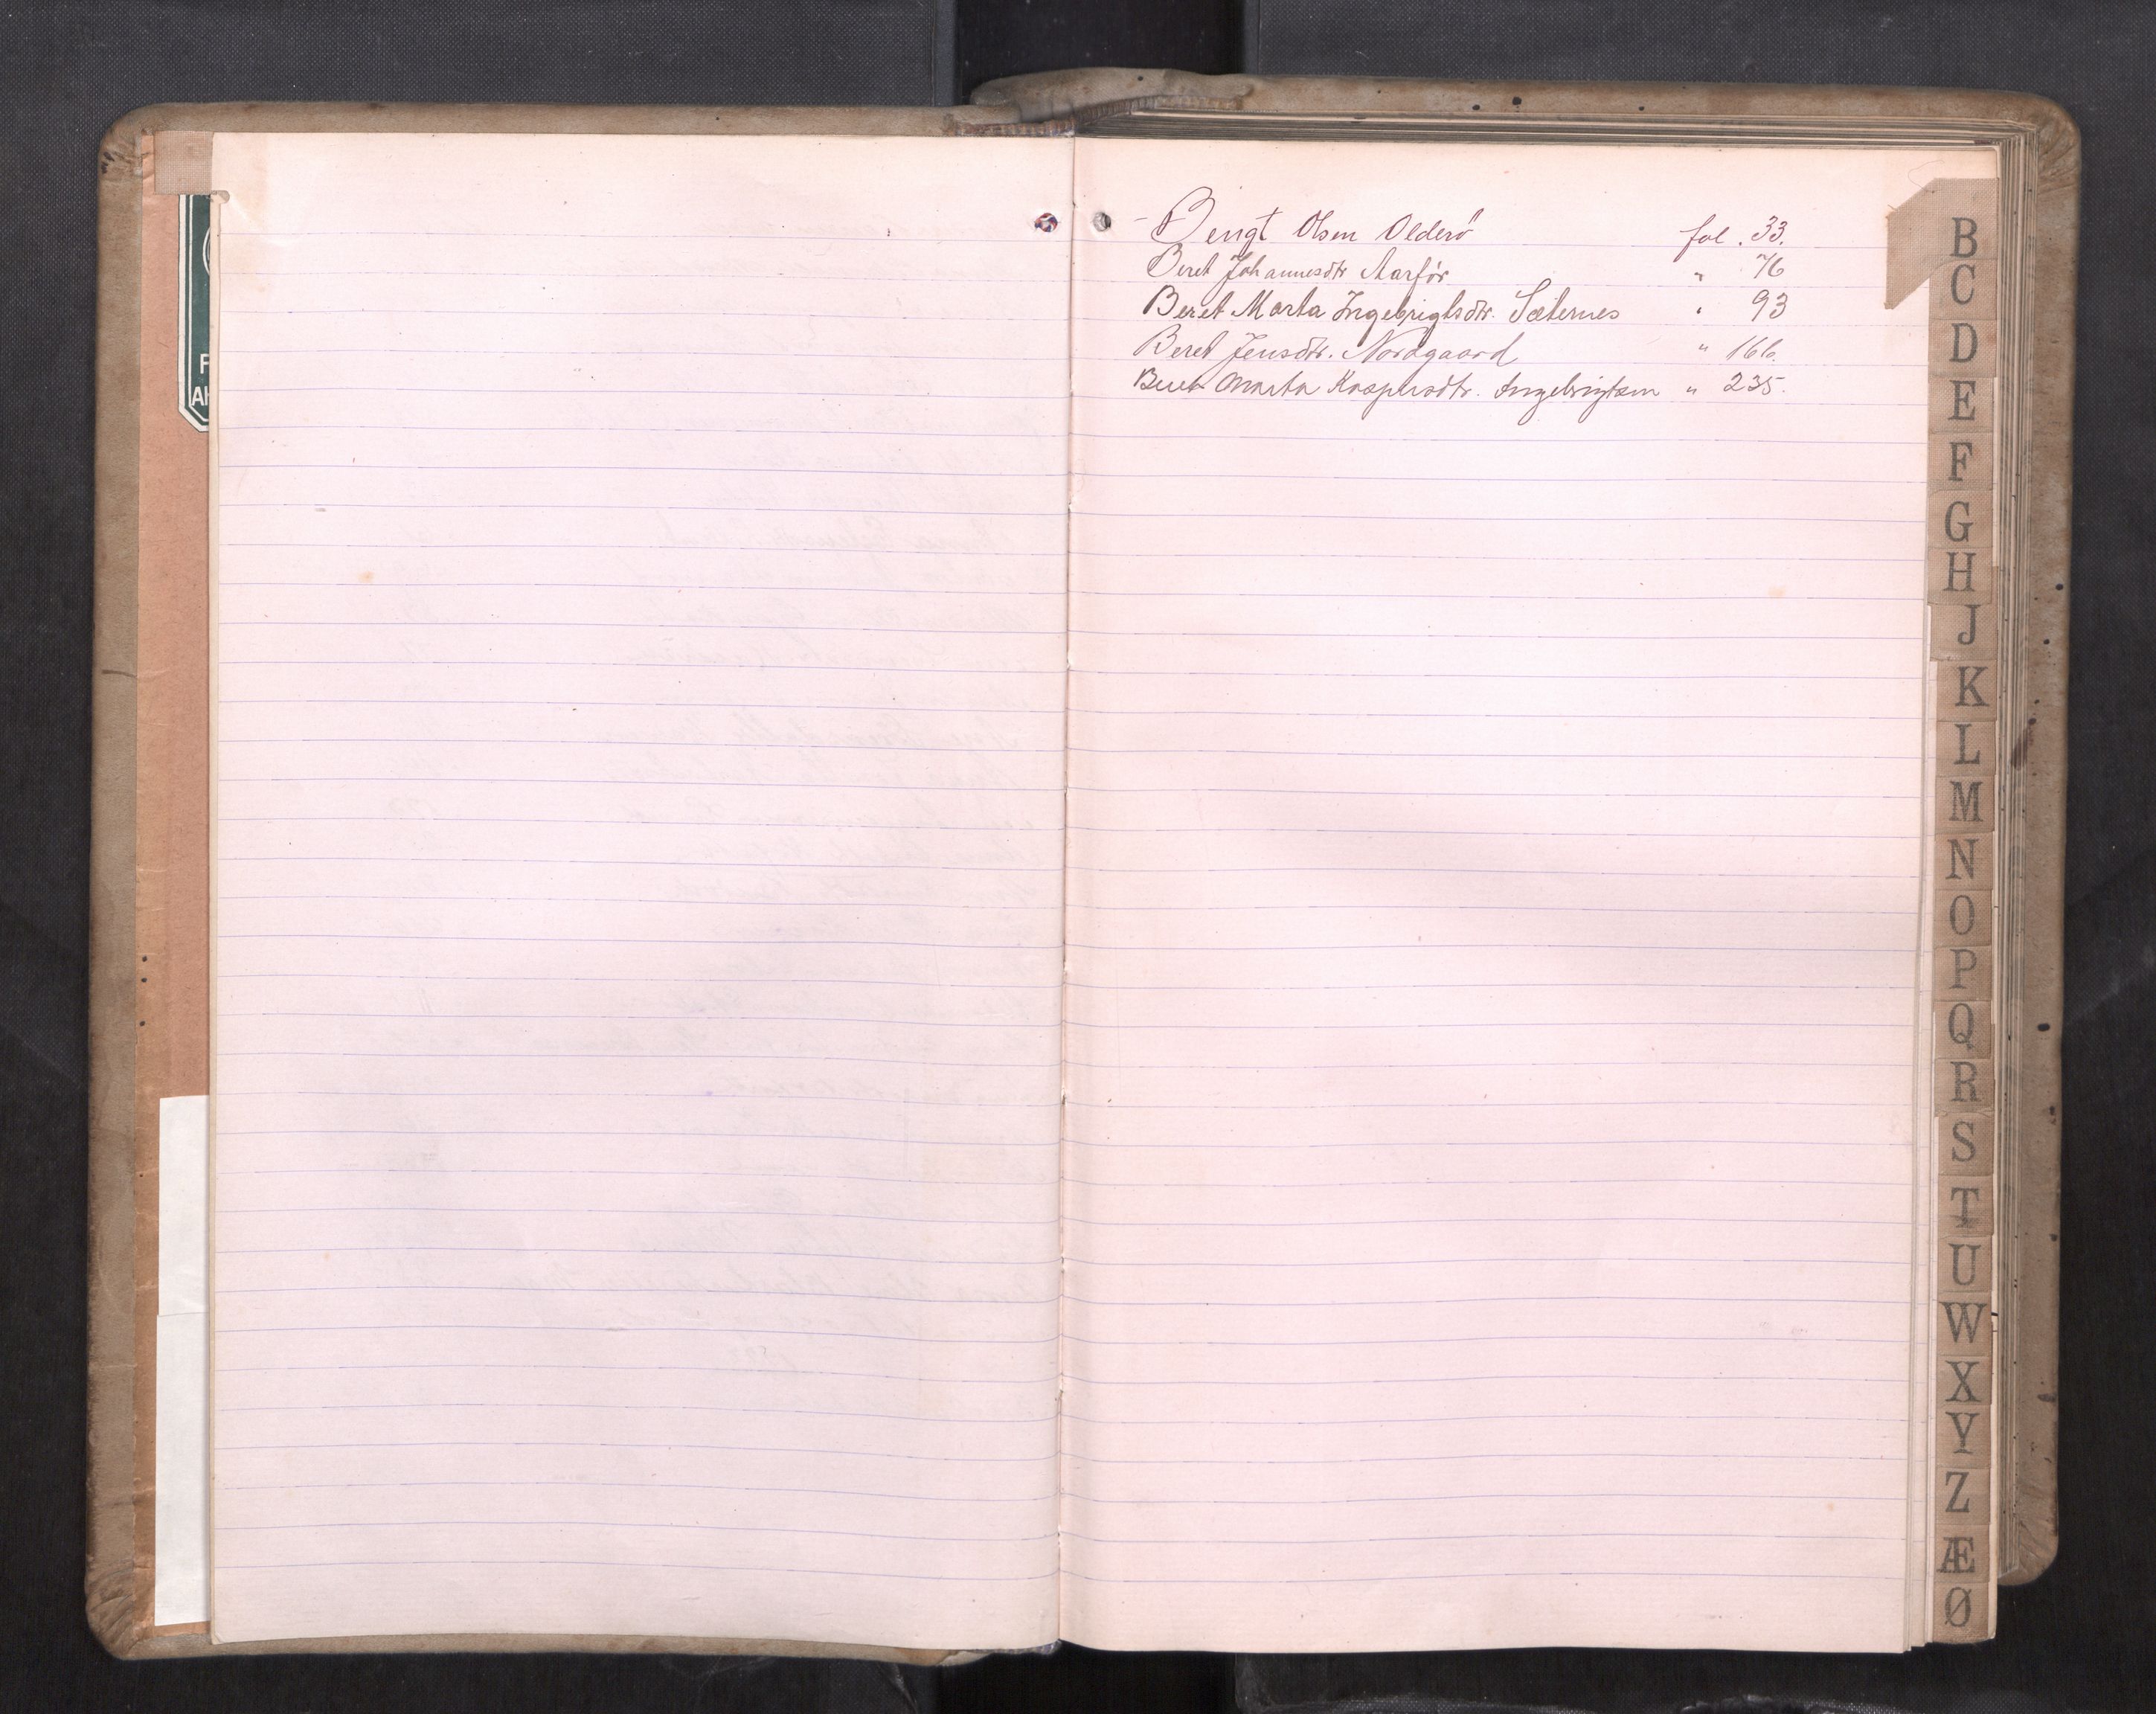 Bengt Olsen Olderö fol. 33.
Beret Johannesdtr Aarför " 76
Beret Marta Ingebrigtsdtr. Sæternes " 93
Beret Jensdtr. Nordgaard " 166.
Beret Marta Kaspersdtr. Ingebrigtsen " 235.
B
C
D
E
F
G
H
J
K
L
M
N
O
P
Q
R
S
T
U
W
X
Y
Z
Æ
Ø